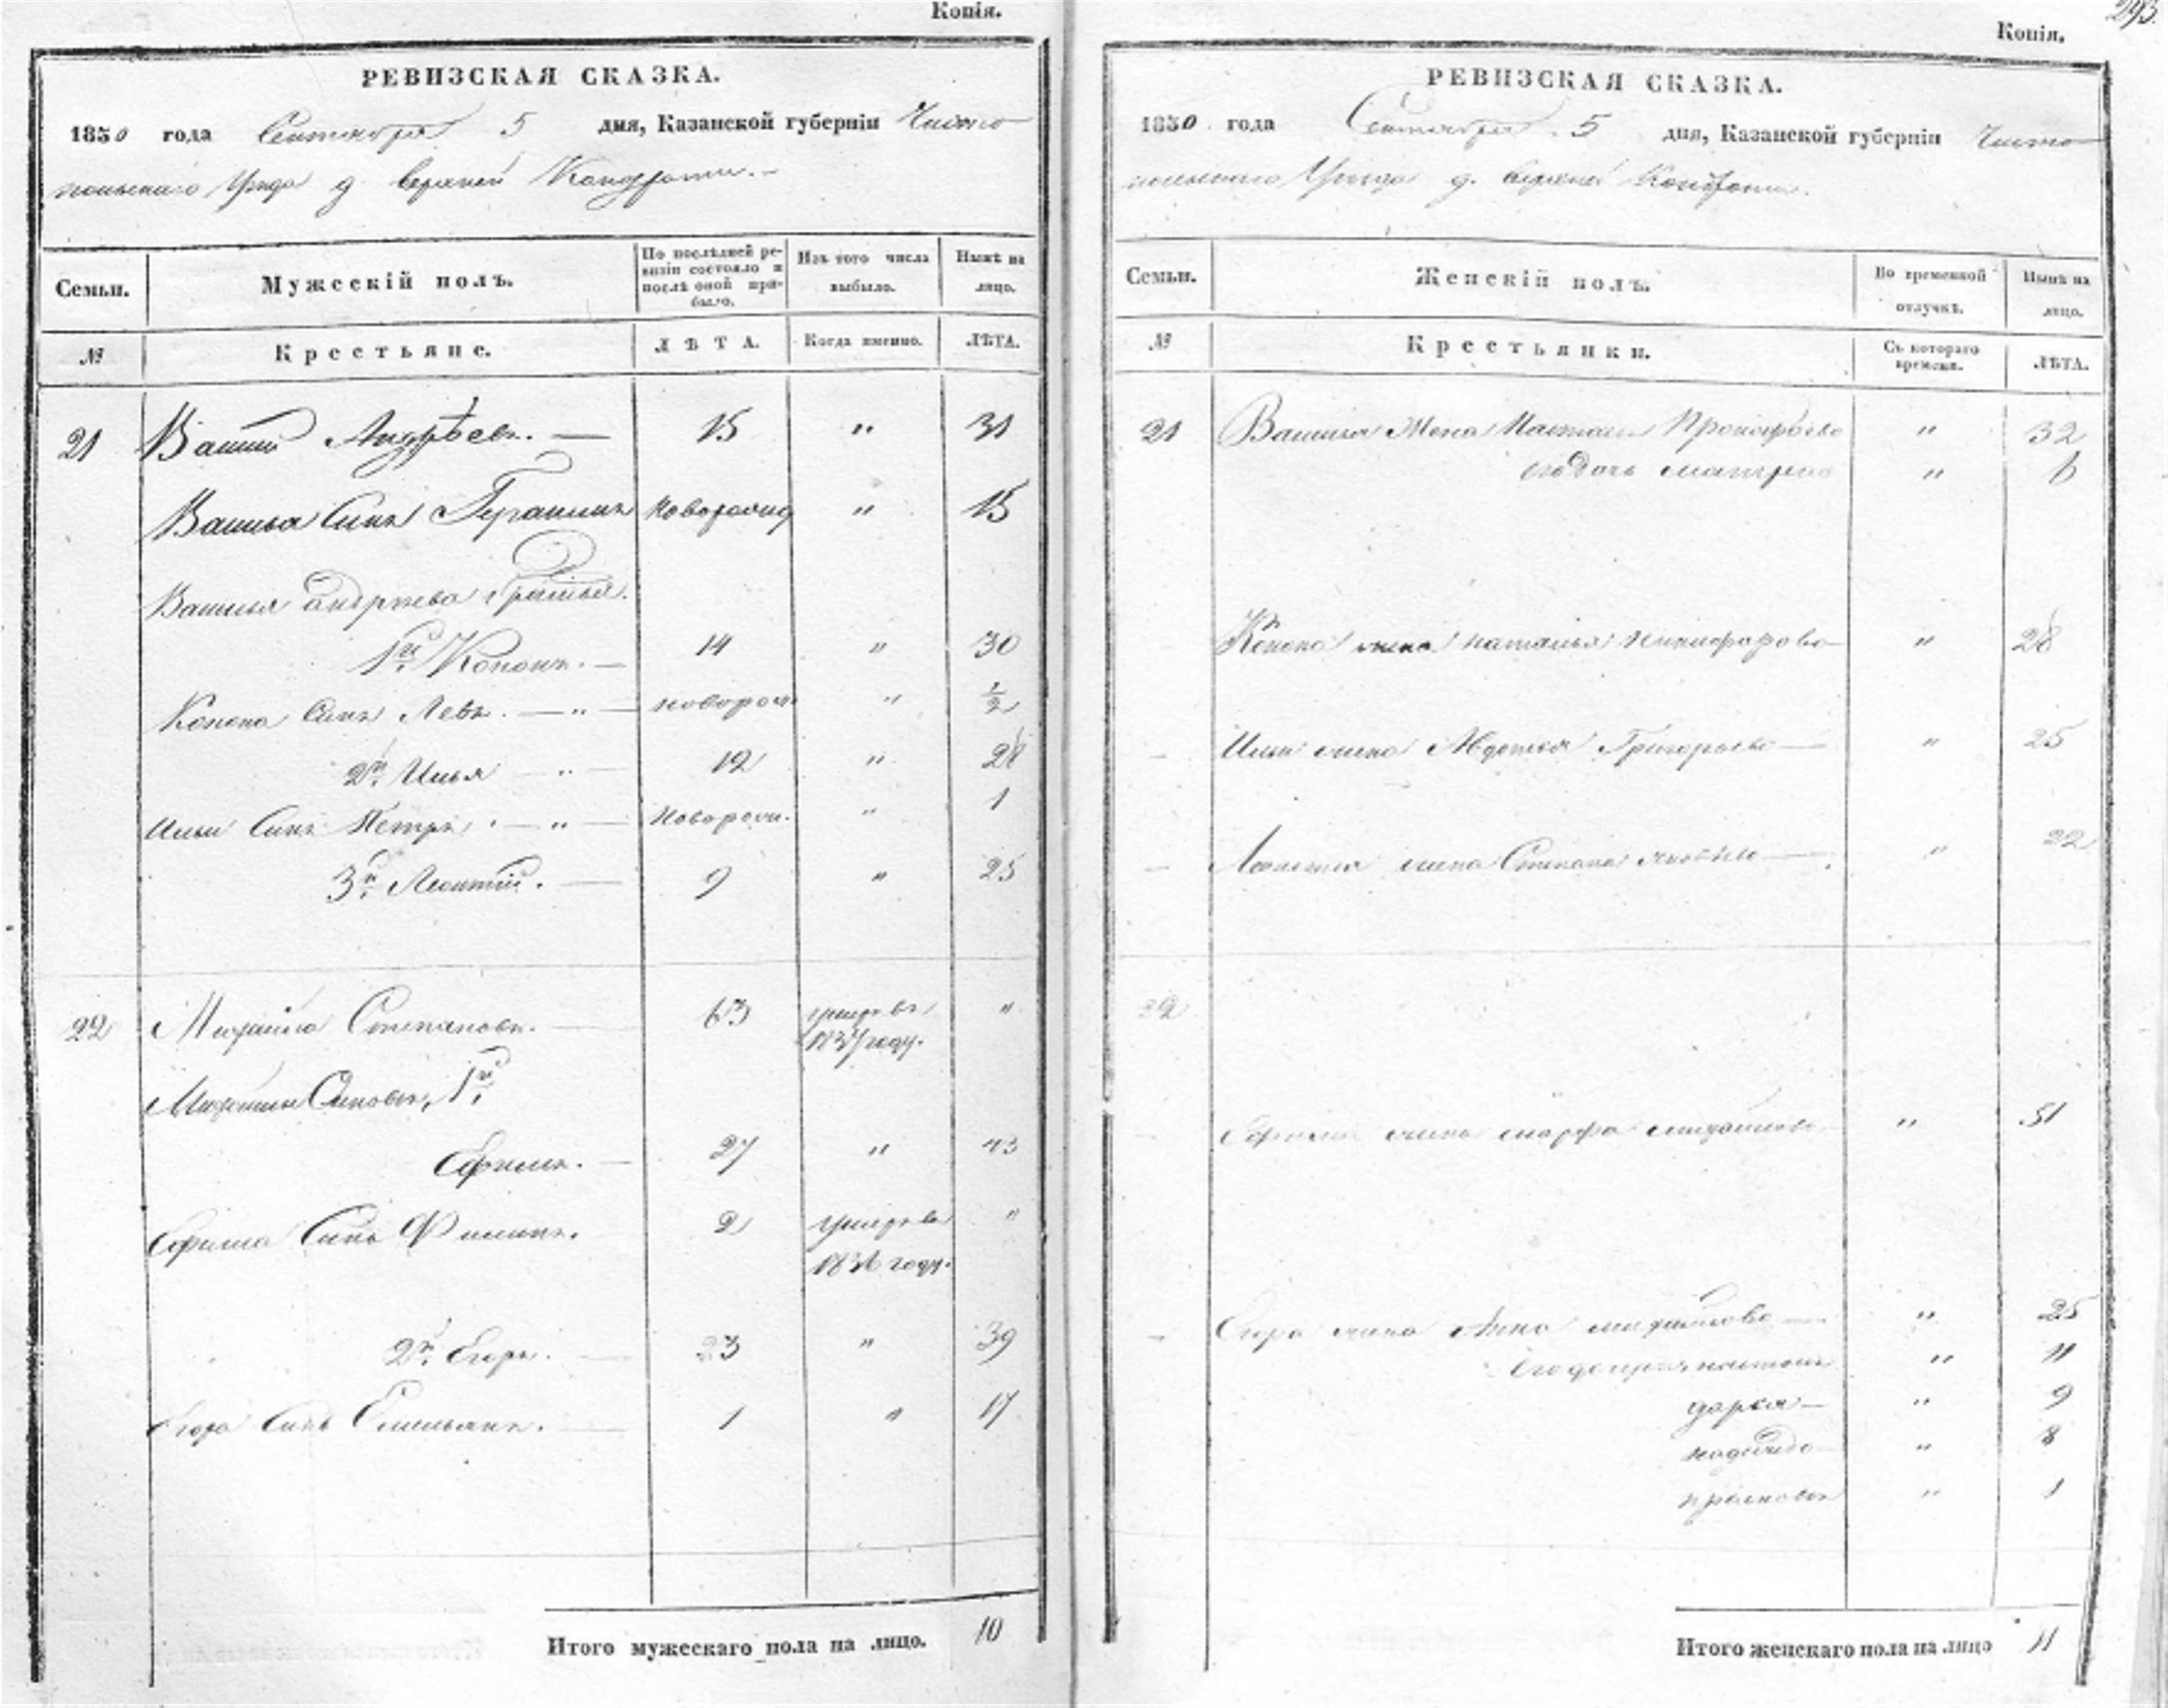 Копія.
РЕВИЗСКАЯ СКАЗКА.
1850 года Сентября 5 дня, Казанской губерніи Чисто
польскаго Уѣзда д. верхней Кондраты.
Семьи.
Мужескій полъ.
По послѣдней ре-
визіи состояло и
послѣ оной при-
было.
Изъ того числа
выбыло.
Нынѣ на
лицо.
№
Крестьяне.
ЛѢТА.
Когда именно.
ЛѢТА.
21 Василій Андрѣевъ. — 15 " 31
Василья Сынъ Герасимъ новорожд " 15
Василья андреева братья.
1й Кононъ. — 14 " 30
Конона Сынъ Левъ. — " — новорож. " 1/2
2й Илья — " — 12 " 28
Ильи Сынъ Петръ. — " — Новорож. " 1
3й Леонтій. — 9 " 25
22 Михайло Степановъ. — 63 умеръ въ "
1837 году.
Михайлы Сыновья, 1й
Ефимъ. — 27 " 43
Ефима Сынъ Филипъ. 2 умеръ въ "
1836 году.
2й Егоръ. — 23 " 39
Егора Сынъ Емельянъ. — 1 " 17
Итого мужескаго пола на лицо. 10
293.
Копія.
РЕВИЗСКАЯ СКАЗКА.
1850 года Сентября 5 дня, Казанской губерніи Чисто
польскаго Уѣзда д. верхней Кондраты.
Семьи.
Женскій полъ.
Во временной
отлучкѣ.
Нынѣ на
лицо.
№
Крестьянки.
Съ котораго
времени.
ЛѢТА.
21 Василья Жена Настасья Прокофьева " 32
его дочь матрена " 6
Конона жена наталья никифорова " 28
— Ильи жена Авдотья Григорьева — " 25
— Леонтья жена Степанида — " 22
22
— Ефима жена марфа михайлова " 51
— Егора жена Анна михайлова — " 25
его дочери настасья " 11
дарья — " 9
надежда " 8
прасковья " 1
Итого женскаго пола на лицо 11